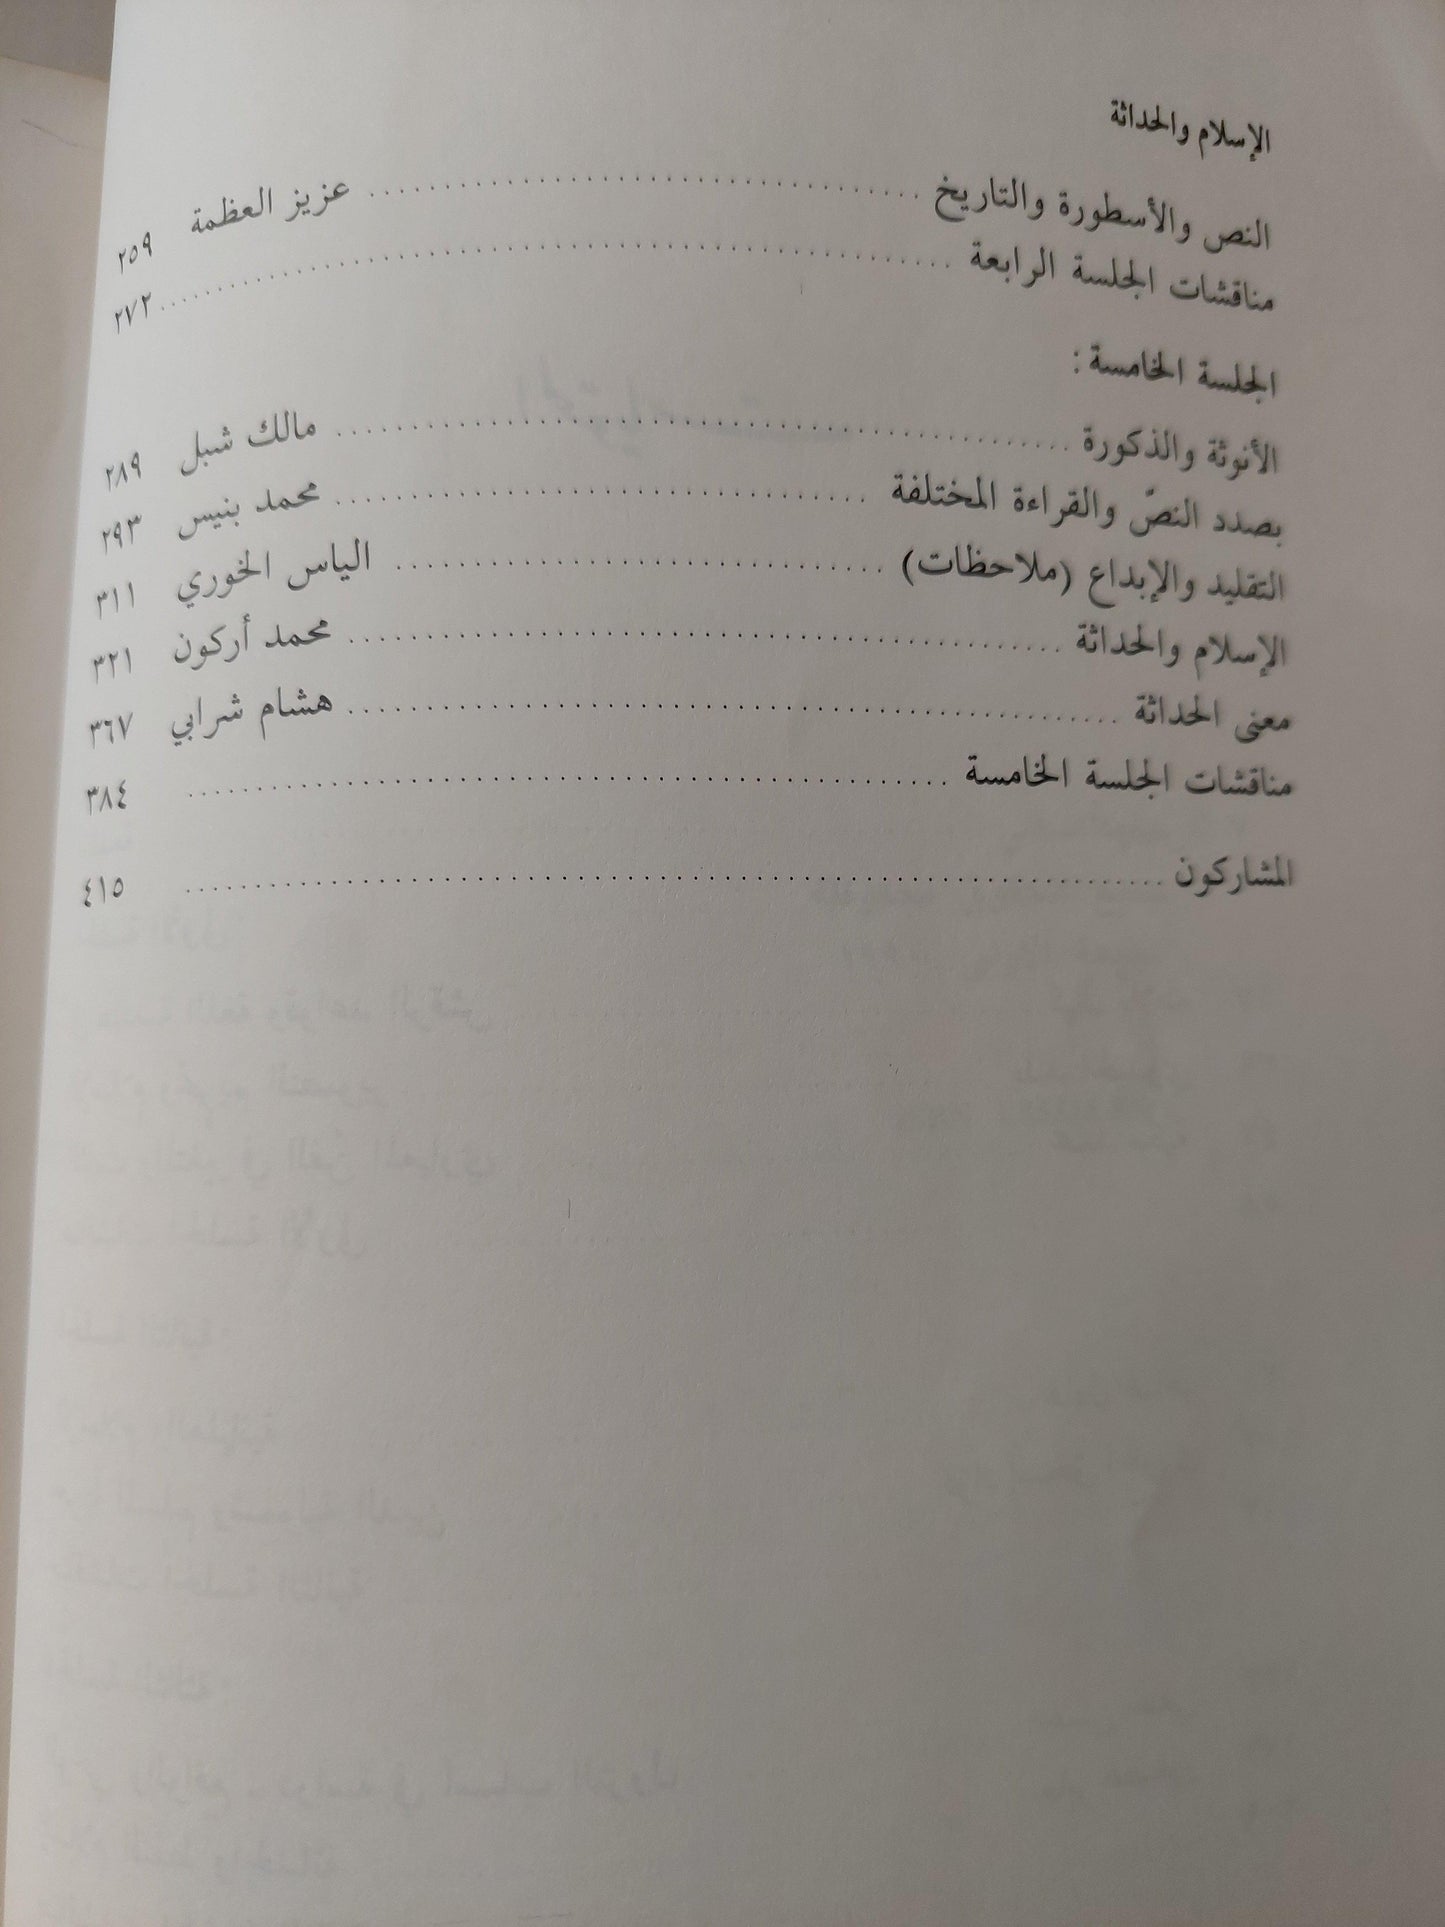 الإسلام والحداثة
النص والأسطورة والتاريخ ........ عزيز العظمة ٢٥٩
مناقشات الجلسة الرابعة ........ ٢٧٢
الجلسة الخامسة :
الأنوثة والذكورة ........ مالك شبل ٢٨٩
بصدد النصّ والقراءة المختلفة ........ محمد بنيس ٢٩٣
التقليد والإبداع (ملاحظات) ........ الياس الخوري ٣١١
الإسلام والحداثة ........ محمد أركون ٣٢١
معنى الحداثة ........ هشام شرابي ٣٦٧
مناقشات الجلسة الخامسة ........ ٣٨٤
المشاركون ........ ٤١٥